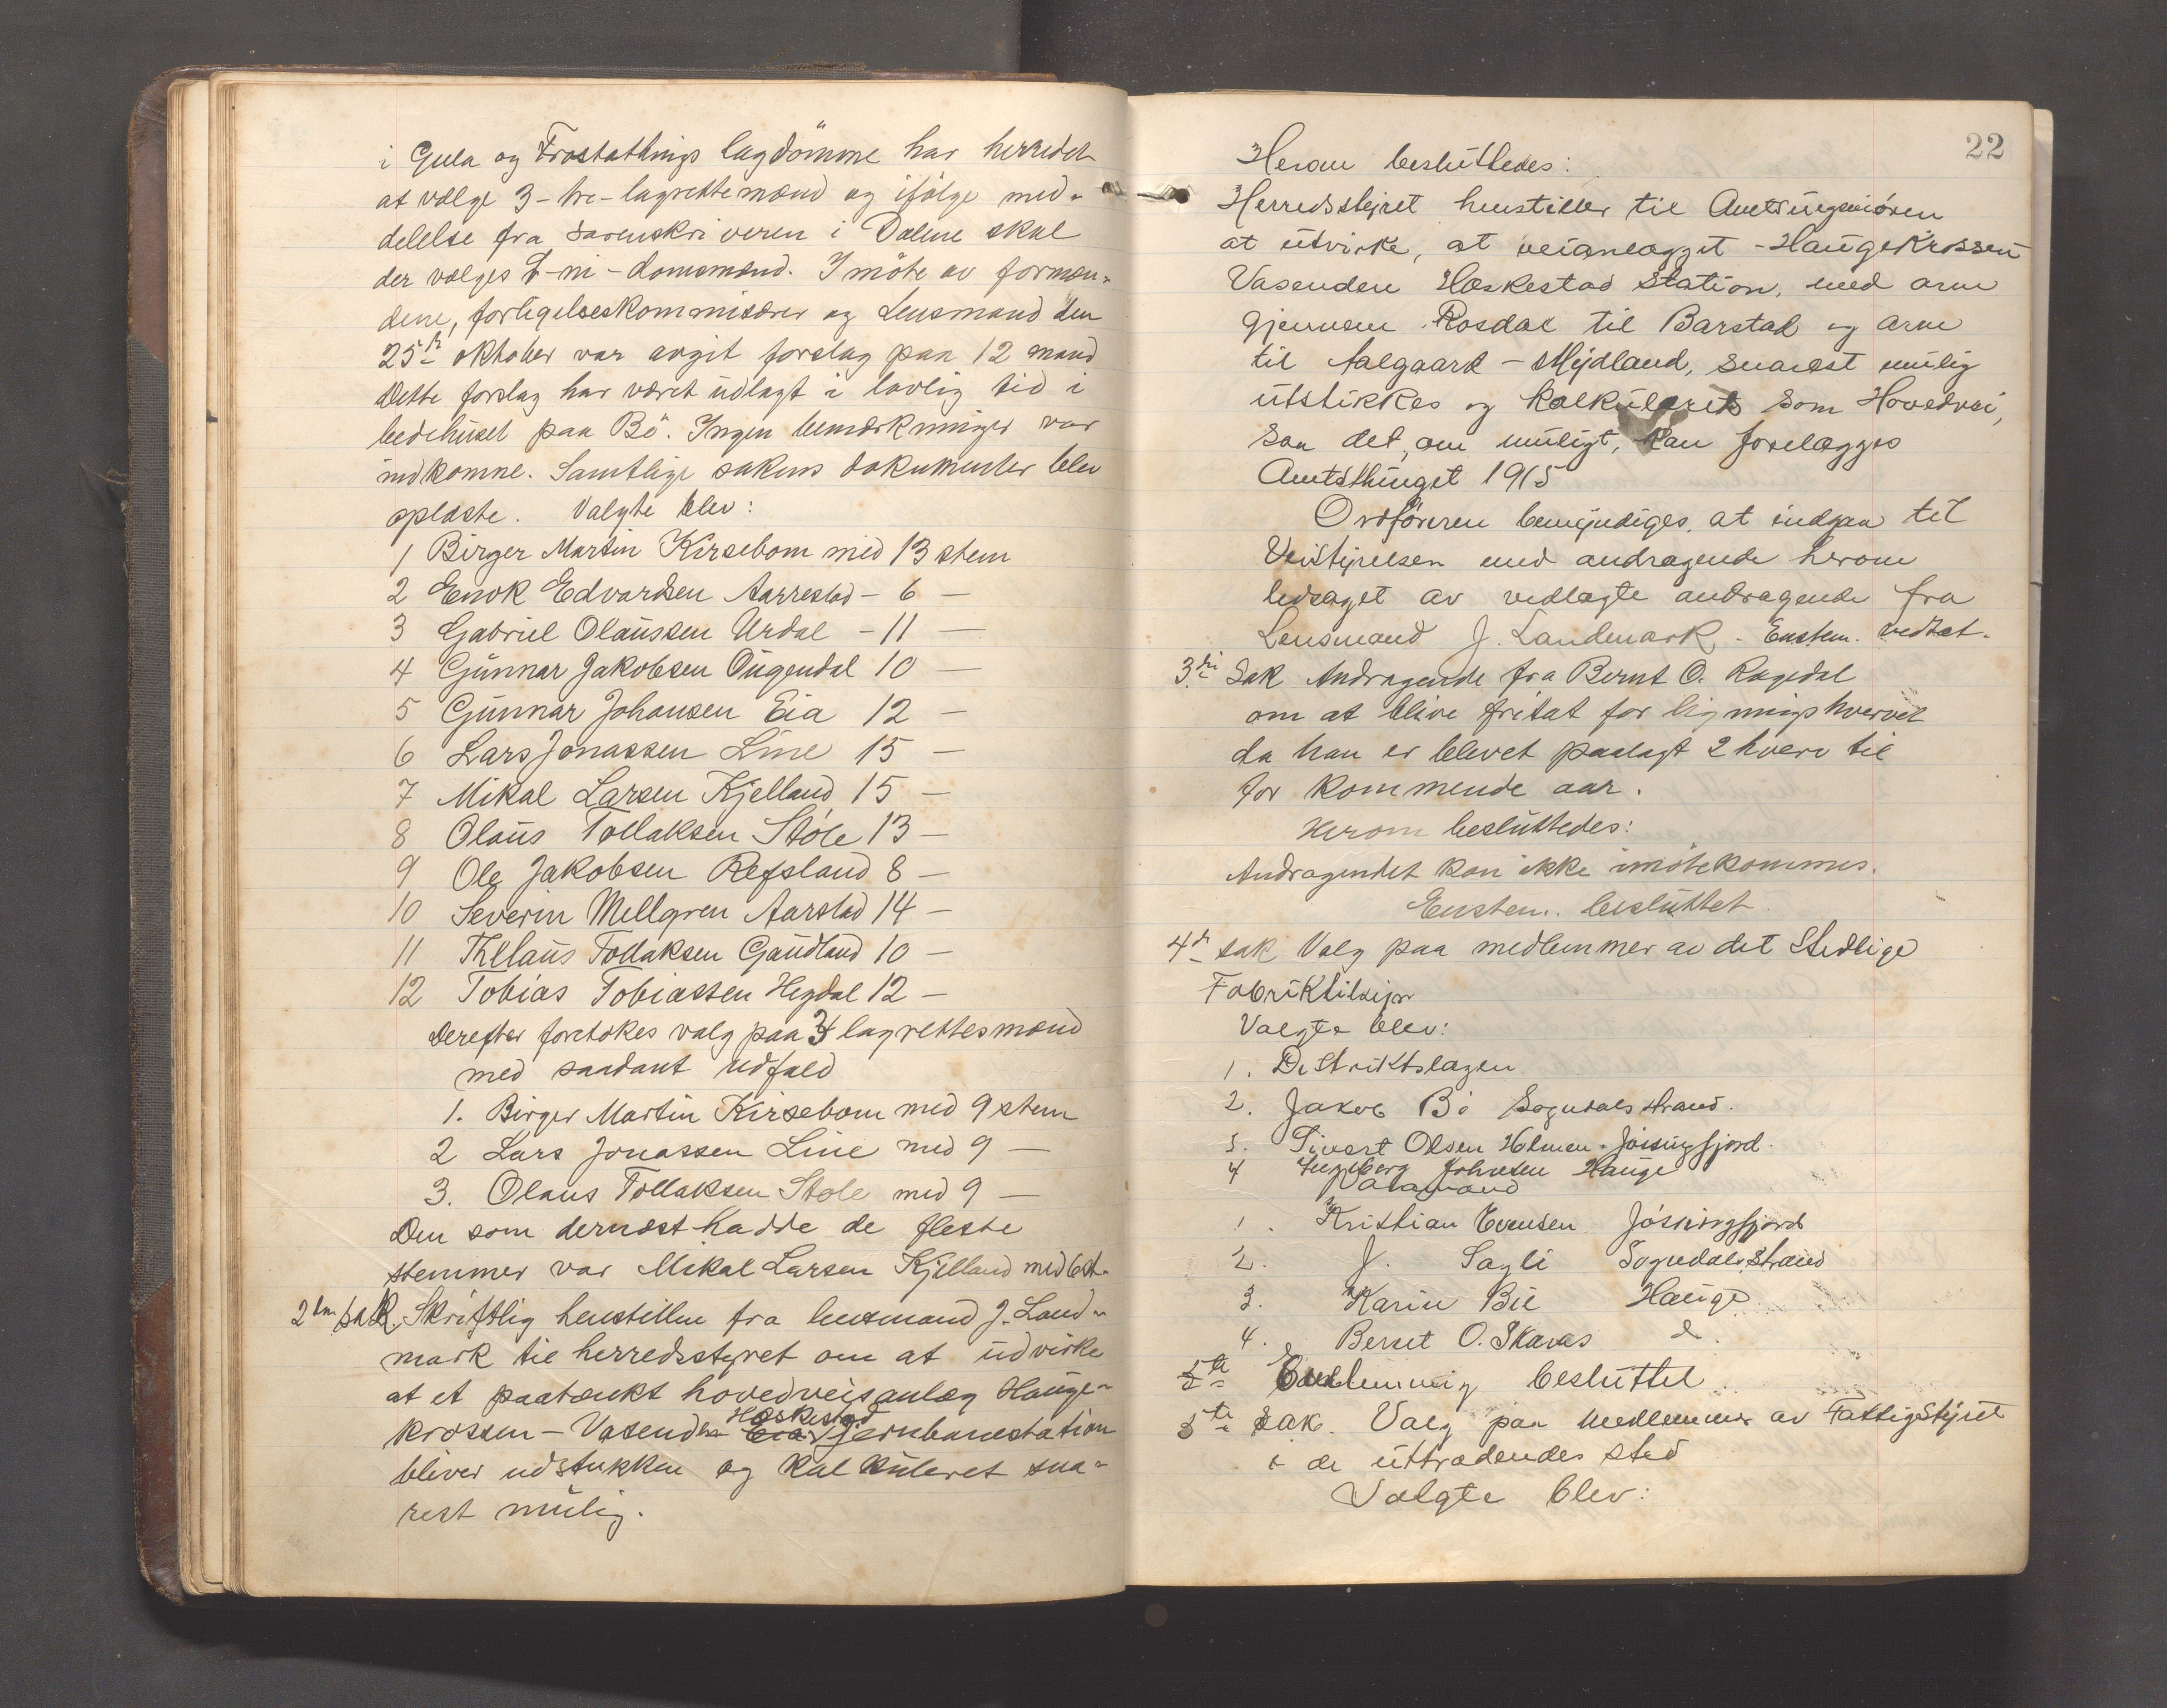 i Gula og Frostathings lagdömme har herredet
at vælge 3-tre-lagrettemænd og ifölge med-
delelse fra Sorenskriveren i Dalene skal
der vælges -ni-domsmænd. I möte av formæn-
dene, forligelseskommisærer og Lensmand den
25de oktober var avgit forslag paa 12 mand
Dette forslag har været udlagt i lovlig tid i
bedehuset paa Bö. Ingen bemærkninger var
indkomne. Samtlige sakens dokumenter blev
oplæste. Valgte blev:
1 Birger Martin Kirsebom med 13 stem
2 Enok Edvardsen Aarrestad - 6 —
3 Gabriel Olaussen Urdal - 11 —
4 Gunnar Jakobsen Ougendal 10 —
5 Gunnar Johansen Eia 12 —
6 Lars Jonassen Line 15 —
7 Mikal Larsen Kjelland 15 —
8 Olaus Tollaksen Stöle 13 —
9 Ole Jakobsen Refsland 8 —
10 Severin Mellgren Aarstad 14 —
11 Tollaksen Gaudland 10 —
12 Tobias Tobiassen Hegdal 12 —
Derefter foretokes valg paa 3 lagrettesmænd
med saadant udfald
1. Birger Martin Kirsebom med 9 stem
2 Lars Jonassen Line med 9 —
3. Olaus Tollaksen Stöle med 9 —
Den som dernæst hadde de fleste
stemmer var Mikal Larsen Kjelland med 6 st.
2den sak. Skriftlig henstillen fra lensmand J. Land-
mark til herredsstyret om at udvirke
at et paatænkt hovedveisanlæg Hauge-
Hæskestad
krossen - Vasenden Eia jernbanestation
bliver udstukken og kalkuleret sna-
rest mulig.
22
Herom besluttedes:
Herredsstyret henstiller til Amtsingeniören
at utvirke, at veianlægget - Haugekrossen
Vasenden Hæskestad Station, med arm
gjennem Rosdal til Barstad og arm
til Aalgaard - Mydland, snarest mulig
utstikkes og kalkuleres som Hovedvei,
saa det, om muligt, kan forelægges
Amtsthinget 1915
Ordföreren bemyndiges, at indgaa til
Veistyrelsen med andragende herom
ledsaget av vedlagte andragende fra
Lensmand J. Landmark. Enstem. vedtat.
3die Sak Andragende fra Bernt O. Rægedal
om at blive fritat for ligningshvervet
da han er blevet paalagt 2 hverv til
for kommende aar.
Herom besluttedes:
Andragendet kan ikke imötekommes.
Enstem. besluttet.
4de sak Valg paa medlemmer av det Stedlige
Fabriktilsyn
Valgte blev:
1. Distriktslægen
2. Jakob Bö Sogndalsstrand.
3. Sivert Olsen Holmen Jössingfjord.
4 Ingeborg Johnsen Hauge
Varamænd
1. Kristian Evensen Jössingfjord
2. J. Sagli Sogndalsstrand
3. Karin Bie Hauge
4. Bernt O. Skaraas do.
5te Enstemmig besluttet
5te Sak. Valg paa medlemmer av Fattigstyret
i de uttrædendes sted
Valgte blev: